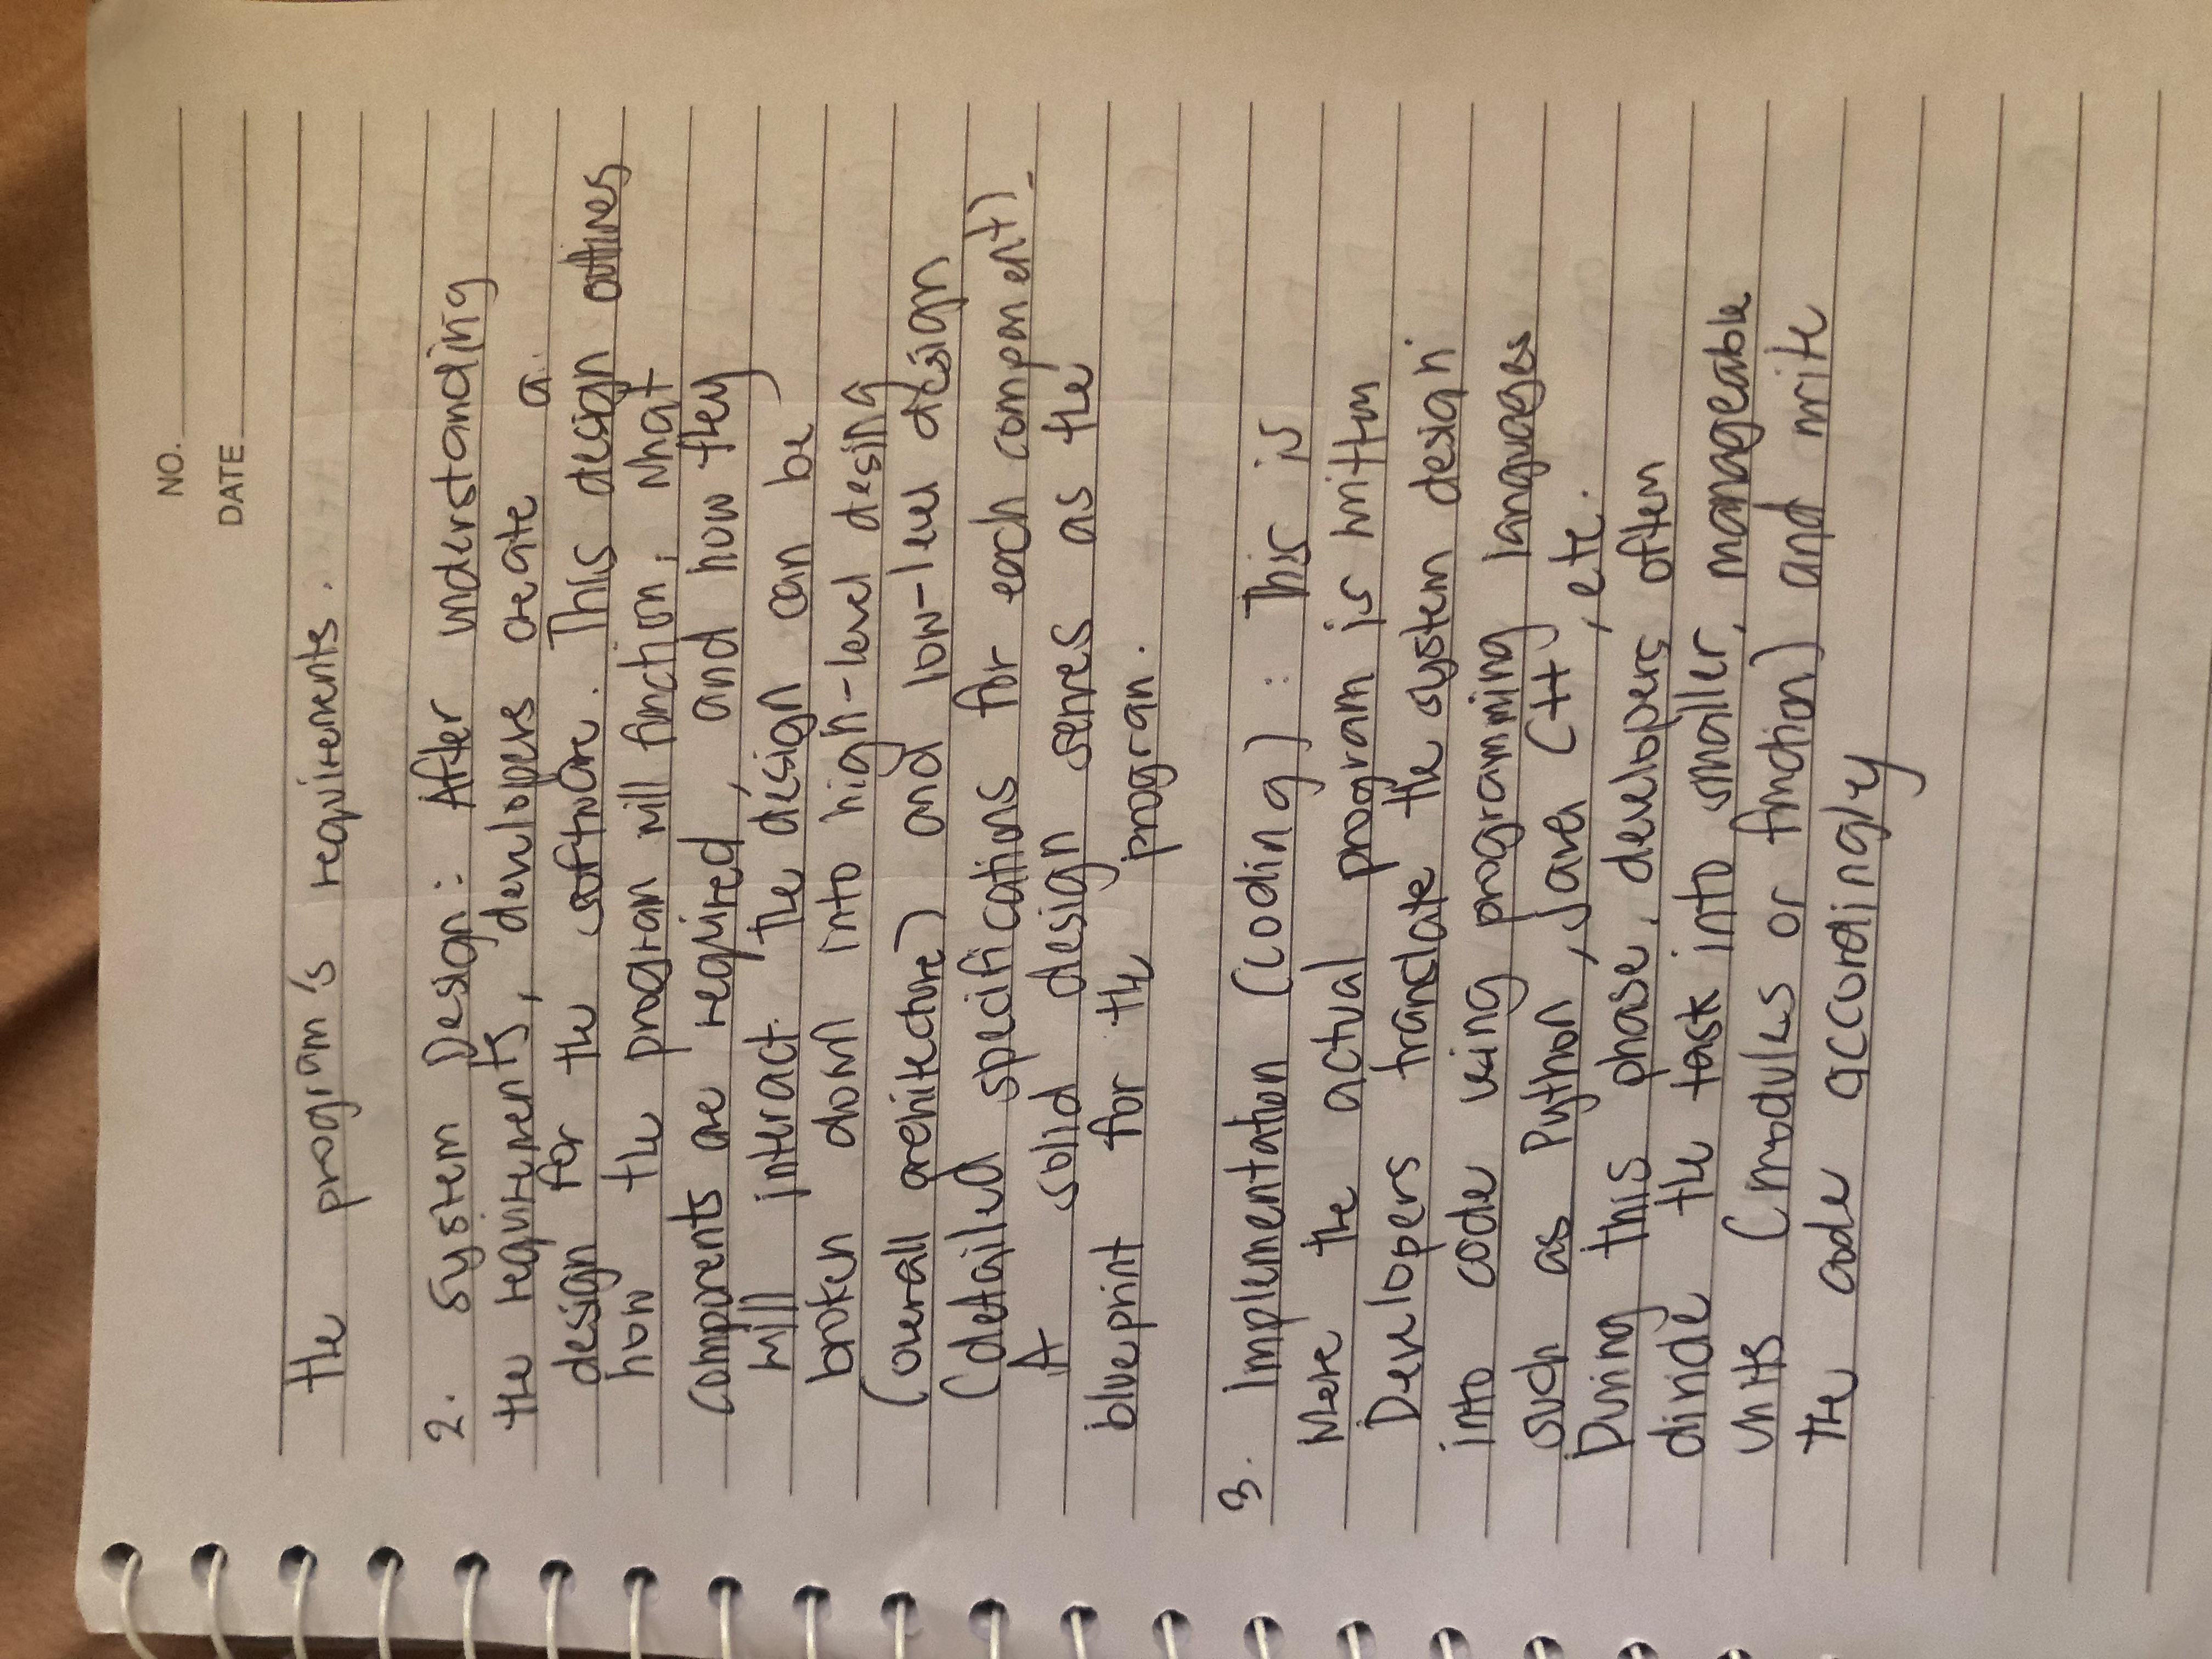 NO.
DATE
the program's requirements.
2. System Design: After understanding
the requirements, developers create a
design for the software. This design outlines
how the program will function, what
components are required, and how they
will interact. The design can be
broken down into high-level desing
(overall architecture) and low-level design
(detailed specifications for each component).
A solid design serves as the
blueprint for the program.
3. Implementation (Coding): This is
where the actual program is written
Developers translate the system design
into code using programming languages
such as Python, Java C++, etc.
During this phase, developers often
divide the task into smaller, manageable
units (modules or function) and write
the code accordingly